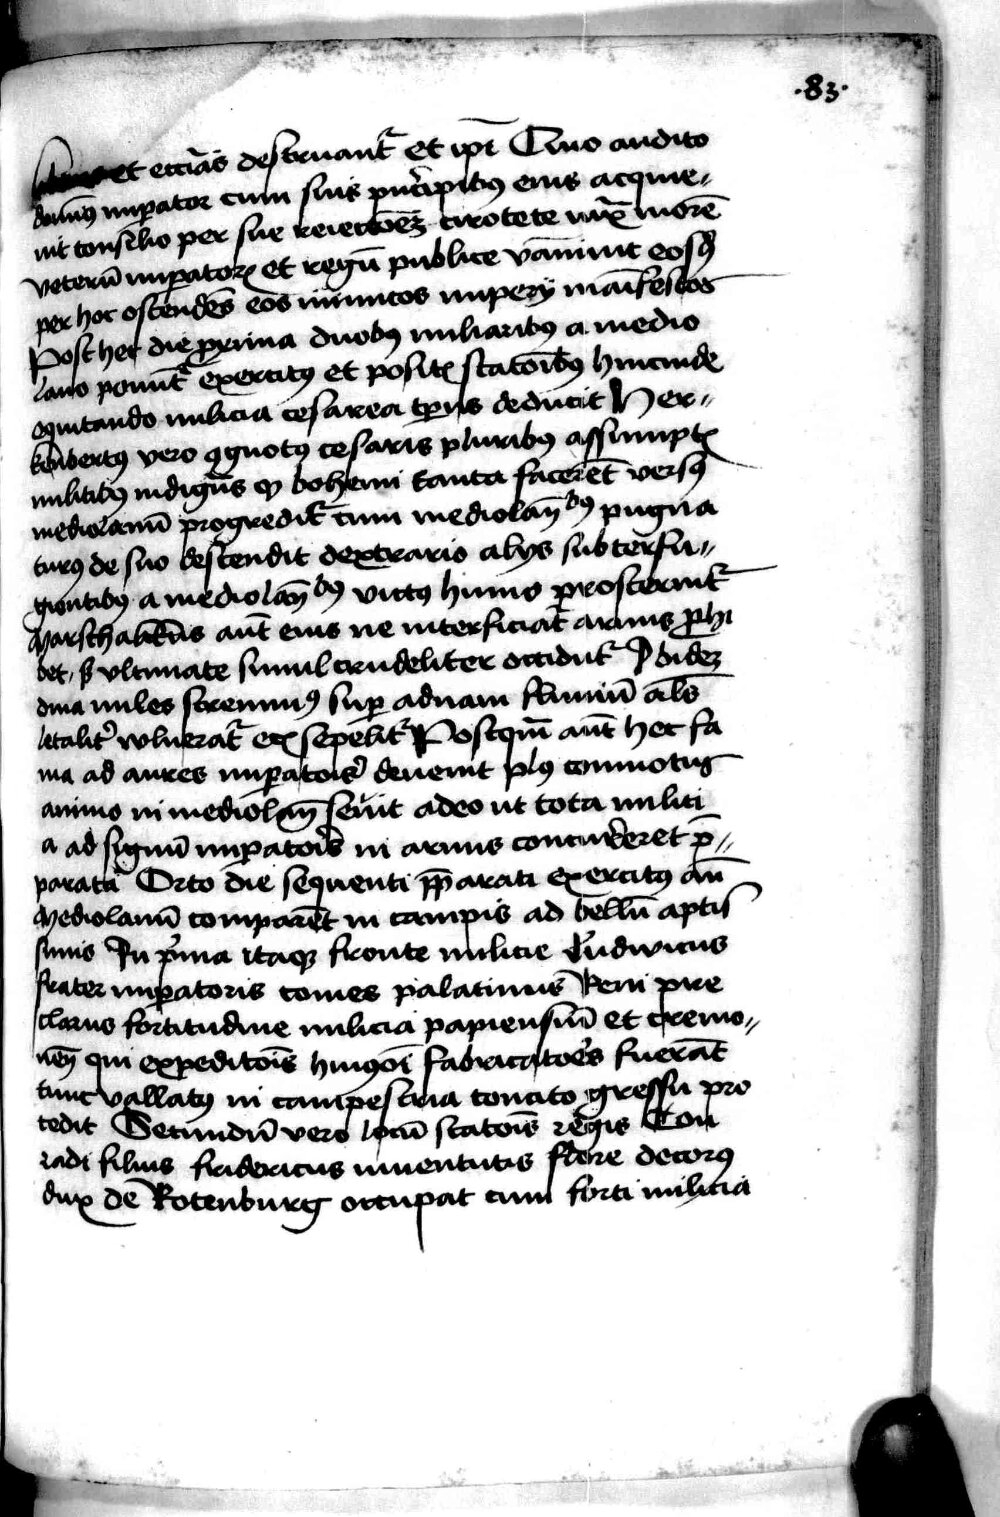 ·83·
et ecciās destruant̄ et ip̄i Quo audito
dominus imp̄ator cum suis p̄ncipibꝰ eius acquie⸗
uit consilio per sue reiectōeȝ cirotece iux̄ morē
veterū imp̄atorꝝ et regū publice vāniuit eosqꝫ
per hoc ostendēs eos inimicos imperij māifestos
Post hec die p̄xima duobꝰ miliaribꝰ a medio
lano ponunt̄ exercitꝰ et positꝭ statōibꝰ hincinde
equitando milicia cesarea tp̄us deducit Her⸗
kēbertꝰ vero ꝯgnotꝰ cesaris pluribꝰ assumptꝭ
militibꝰ indignās ꝙ bohemi tanta facerēt versꝰ
mediolanū progredit̄ cum mediolan̄bꝰ pugna
turꝰ de suo descendit dextrario alijs subterfu⸗
gientibꝰ a mediolan̄bꝰ victꝰ humo prosternit̄
Marschalkꝰ aūt eius ne interficiat̄ armis ꝓhi
bet, ultimate simul crudeliter occidūt̄ Ibideȝ
miles strennuꝰ sup̄ aduam fluuiū
letalit̄ wlnerat̄ sepelit̄ Postquā aūt hec fa
ma ad aures imp̄atoris deuenit plꝰ commotus
animo in mediolan̄ seuit adeo ut tota milici
a ad signū imp̄atoris in armis concurreret p̄⸗
parata Orto die sequenti p̄parati exercitꝰ an̄
Mediolanū comparēt in campis ad bellū aptis
simis In p̄ma itaqꝫ fronte milicie Ludwicus
frater imp̄atoris comes palatinus Reni pre
clarus fortitudine milicia papiensiū et cremo⸗
nen̄ qui expeditōis huiꝰmōi fabricatores fuerāt
tunc vallatꝰ in campestria concito gressu pro
cedit Secundū vero locū statōis regis Con
radi filius fridericus iuuentutis flore decorꝰ
dux de Rotenburg occupat cum forti milicia